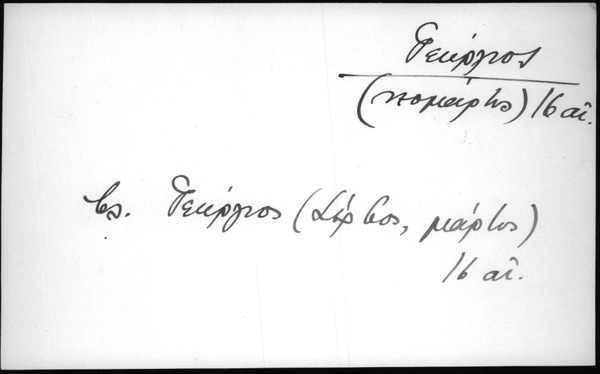 Γεώργιος
(νεομάρτυς) 16 αἰ.
βλ. Γεώργιος (Σέρβος, μάρτυς)
16 αἰ.